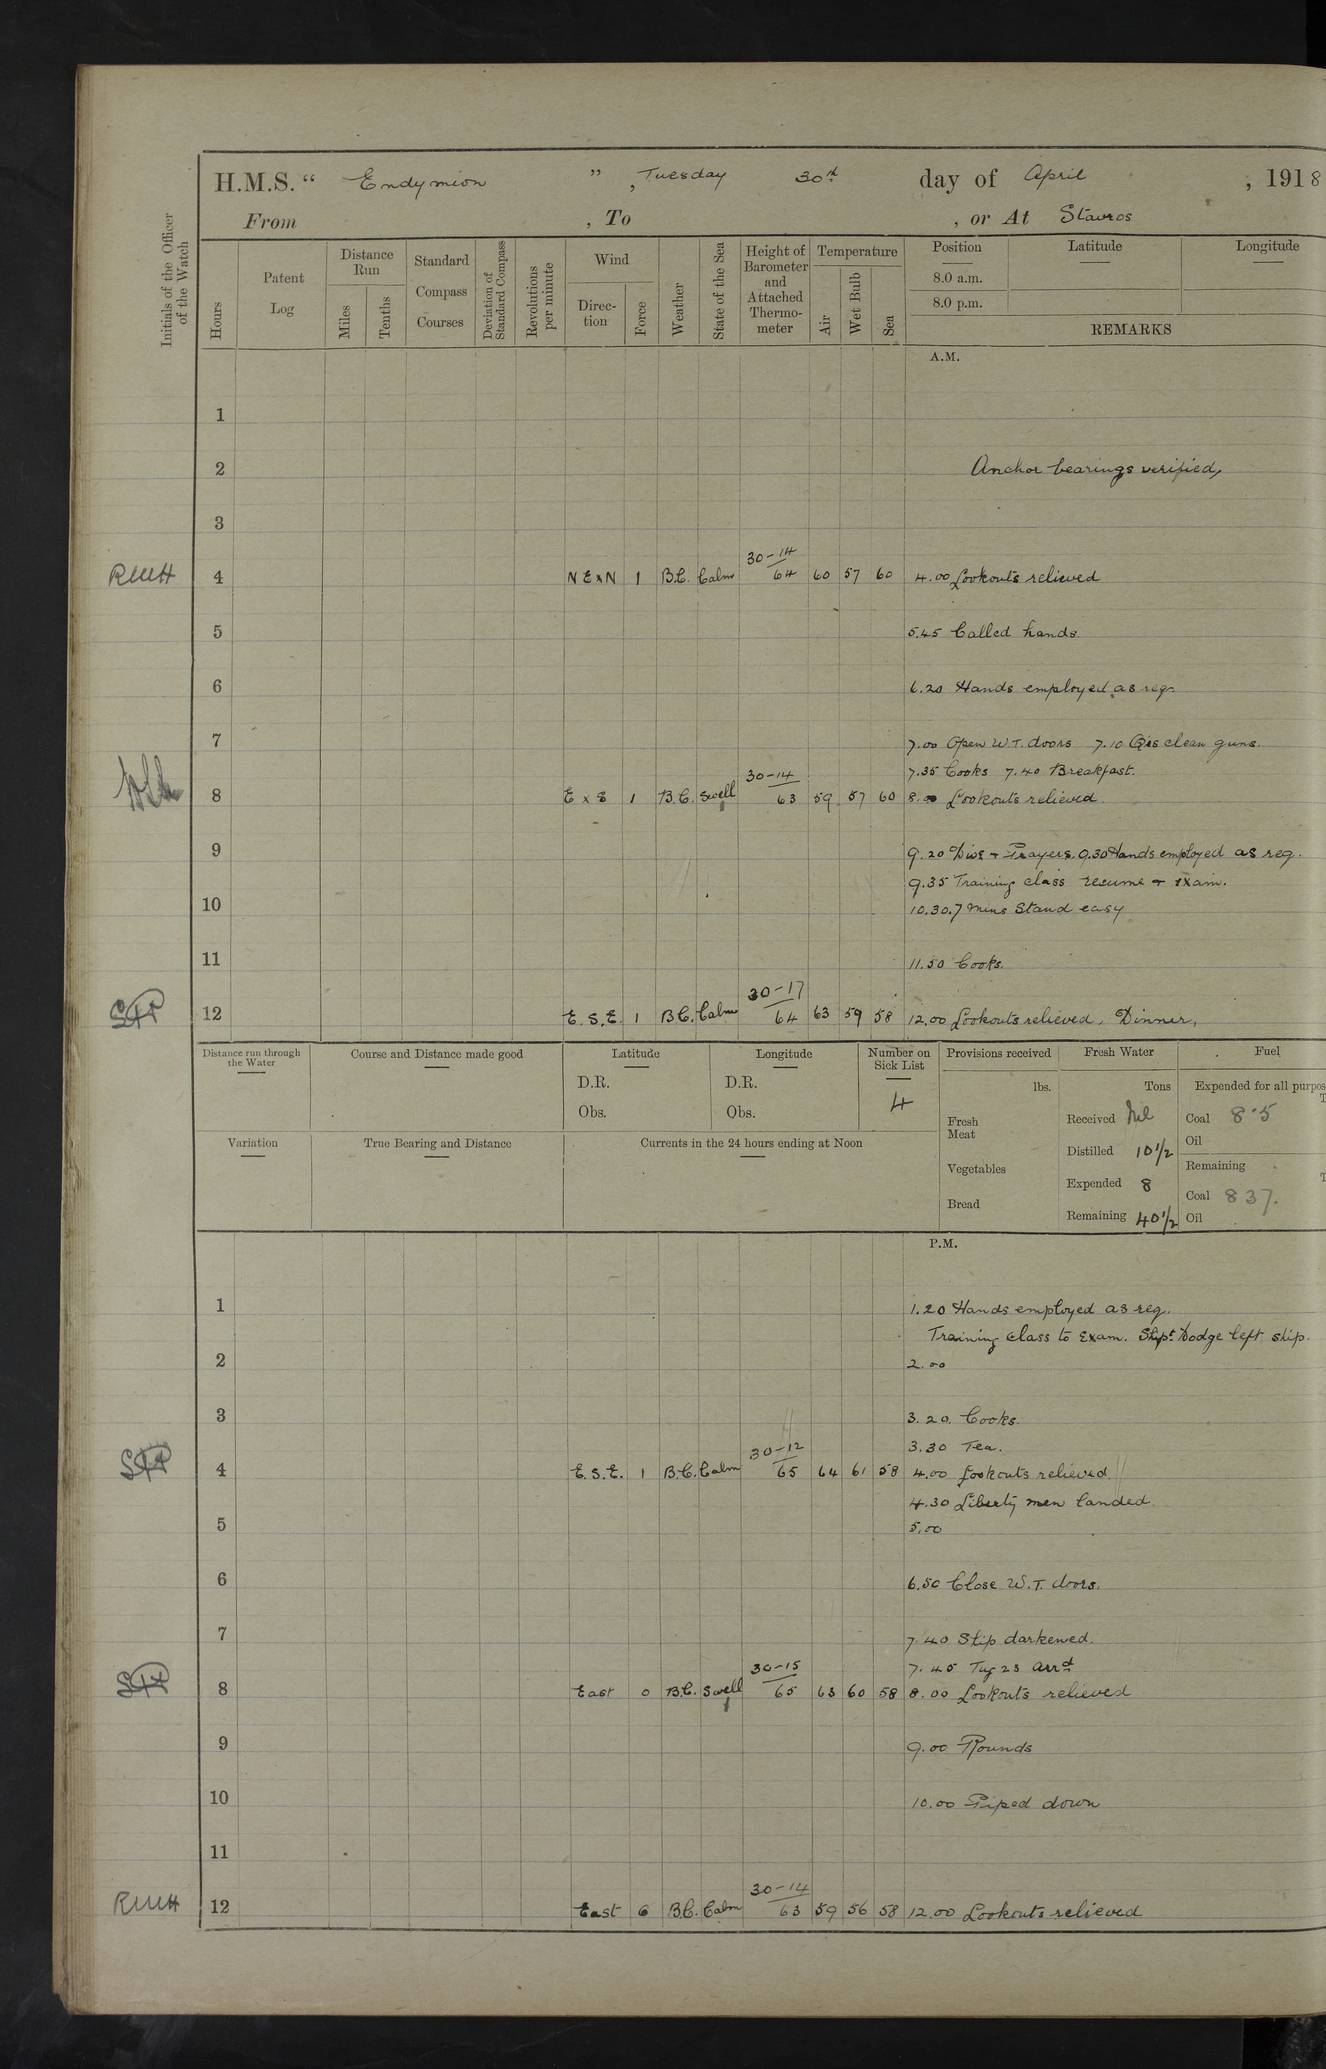 H.M.S. “ Endymion ” , Tuesday 30th day of April , 1918
From , To , or At Stavros
Initials of the Officer of the Watch
Hours
Patent Log
Distance Run
Miles
Tenths
Standard Compass Courses
Deviation of Standard Compass
Revolutions per minute
Wind
Direc-tion
Force
Weather
State of the Sea
Height of Barometer and Attached Thermo-meter
Temperature
Air
Wet Bulb
Sea
Position Latitude Longitude
8.0 a.m.
8.0 p.m.
REMARKS
A.M.
1
2 Anchor bearings verified,
3
30-14
RWH 4 N E x N 1 B.C. Calm 64 60 57 60 4.00 Lookouts relieved
5 5.45 Called hands.
6 6.20 Hands employed as req.
7 7.00 Open W.T. doors 7.10 Q's clean guns.
30-14 7.35 Cooks 7.40 Breakfast.
8 E x S 1 B.C. Swell 63 59 57 60 8.00 Lookouts relieved.
9 9.20 Divs + Prayers. 9.30 Hands employed as req.
9.35 Training class resume + exam.
10 10.30. 7 mins Stand easy
11 11.50 Cooks.
30-17
12 E.S.E. 1 B.C. Calm 64 63 59 58 12.00 Lookouts relieved, Dinner,
Distance run through the Water
Course and Distance made good
Latitude
D.R.
Obs.
Longitude
D.R.
Obs.
Number on Sick List
4
Variation
True Bearing and Distance
Currents in the 24 hours ending at Noon
Provisions received
lbs.
Fresh Meat
Vegetables
Bread
Fresh Water
Tons
Received Nil
Distilled 10 1/2
Expended 8
Remaining 40 1/2
Fuel
Expended for all purpos
Coal 8.5
Oil
Remaining
Coal 837.
Oil
P.M.
1 1.20 Hands employed as req.
Training class to Exam. Skpr Dodge left ship.
2 2.00
3 3.20. Cooks.
30-12 3.30 Tea.
4 E.S.E. 1 B.C. Calm 65 64 61 58 4.00 Lookouts relieved.
4.30 Liberty men landed.
5 5.00
6 6.50 Close W.T. doors.
7 7.40 Ship darkened.
30-15 7.45 Tug 23 arrd
8 East 0 B.C. Swell 65 63 60 58 8.00 Lookouts relieved
9 9.00 Rounds
10 10.00 Piped down
11
30-14
RWH 12 East 0 B.C. Calm 63 59 56 58 12.00 Lookouts relieved